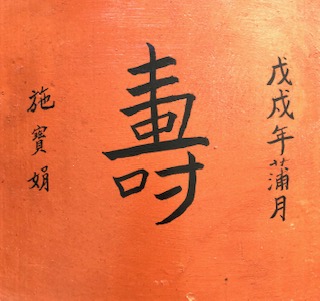 戊戌年蒲月
壽
施寶娟